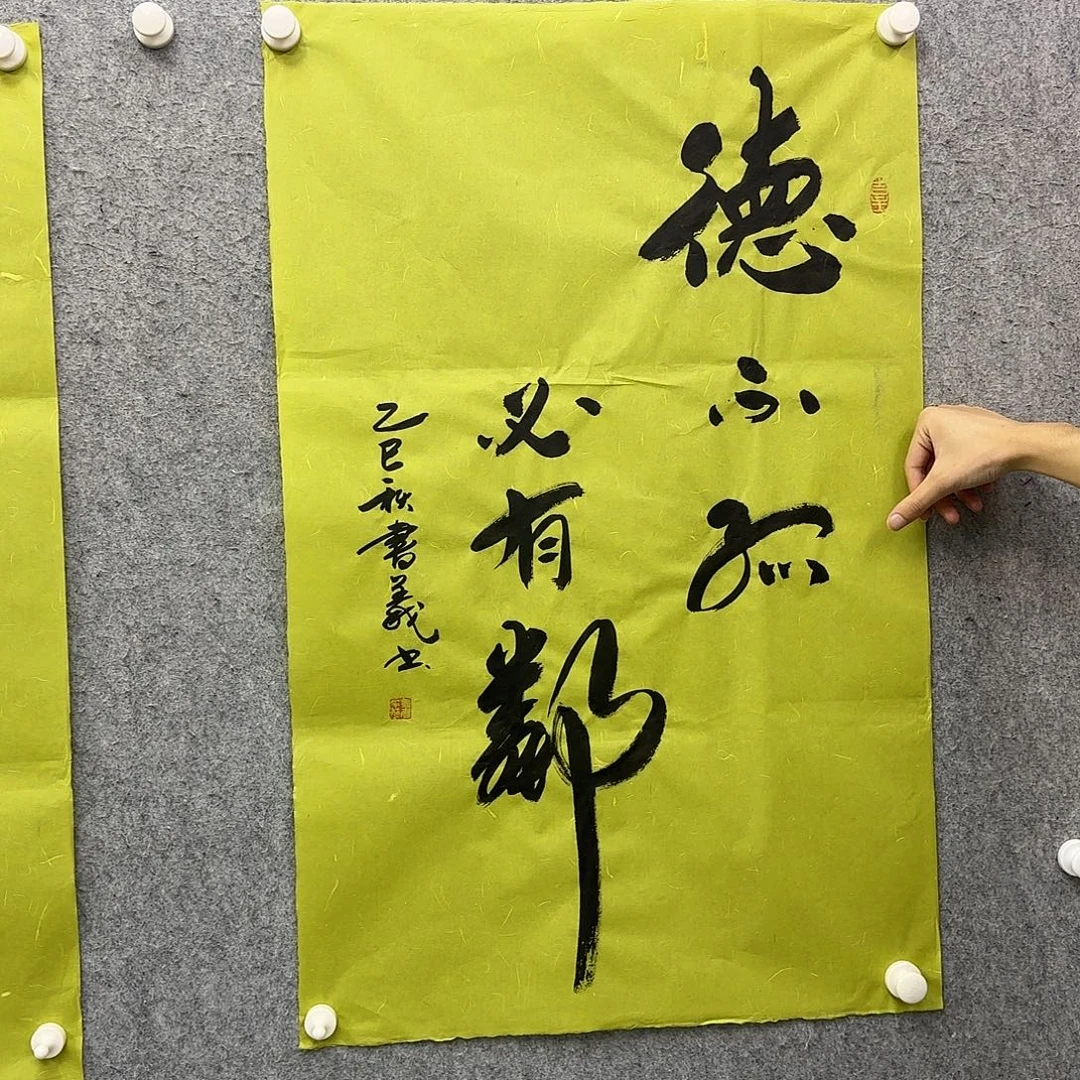 德不孤
必有鄰
乙巳秋書義书